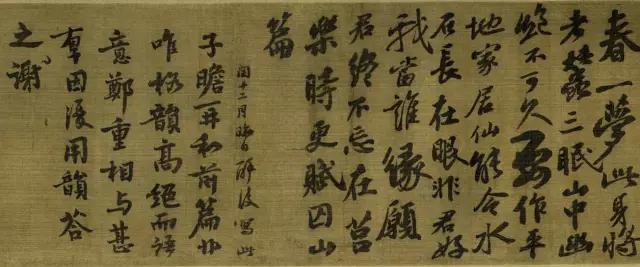 春一夢此身將
老如蠶三眠山中幽
絕不可久要作平
地家居仙能令水
石長在眼非君好
我當誰緣願
君終不忘在莒
樂時更賦囚山
篇
閏十二月晦日醉後寫此
子瞻再和前篇非
唯格韻高絕而語
意鄭重相與甚
厚因復用韻答
之謝